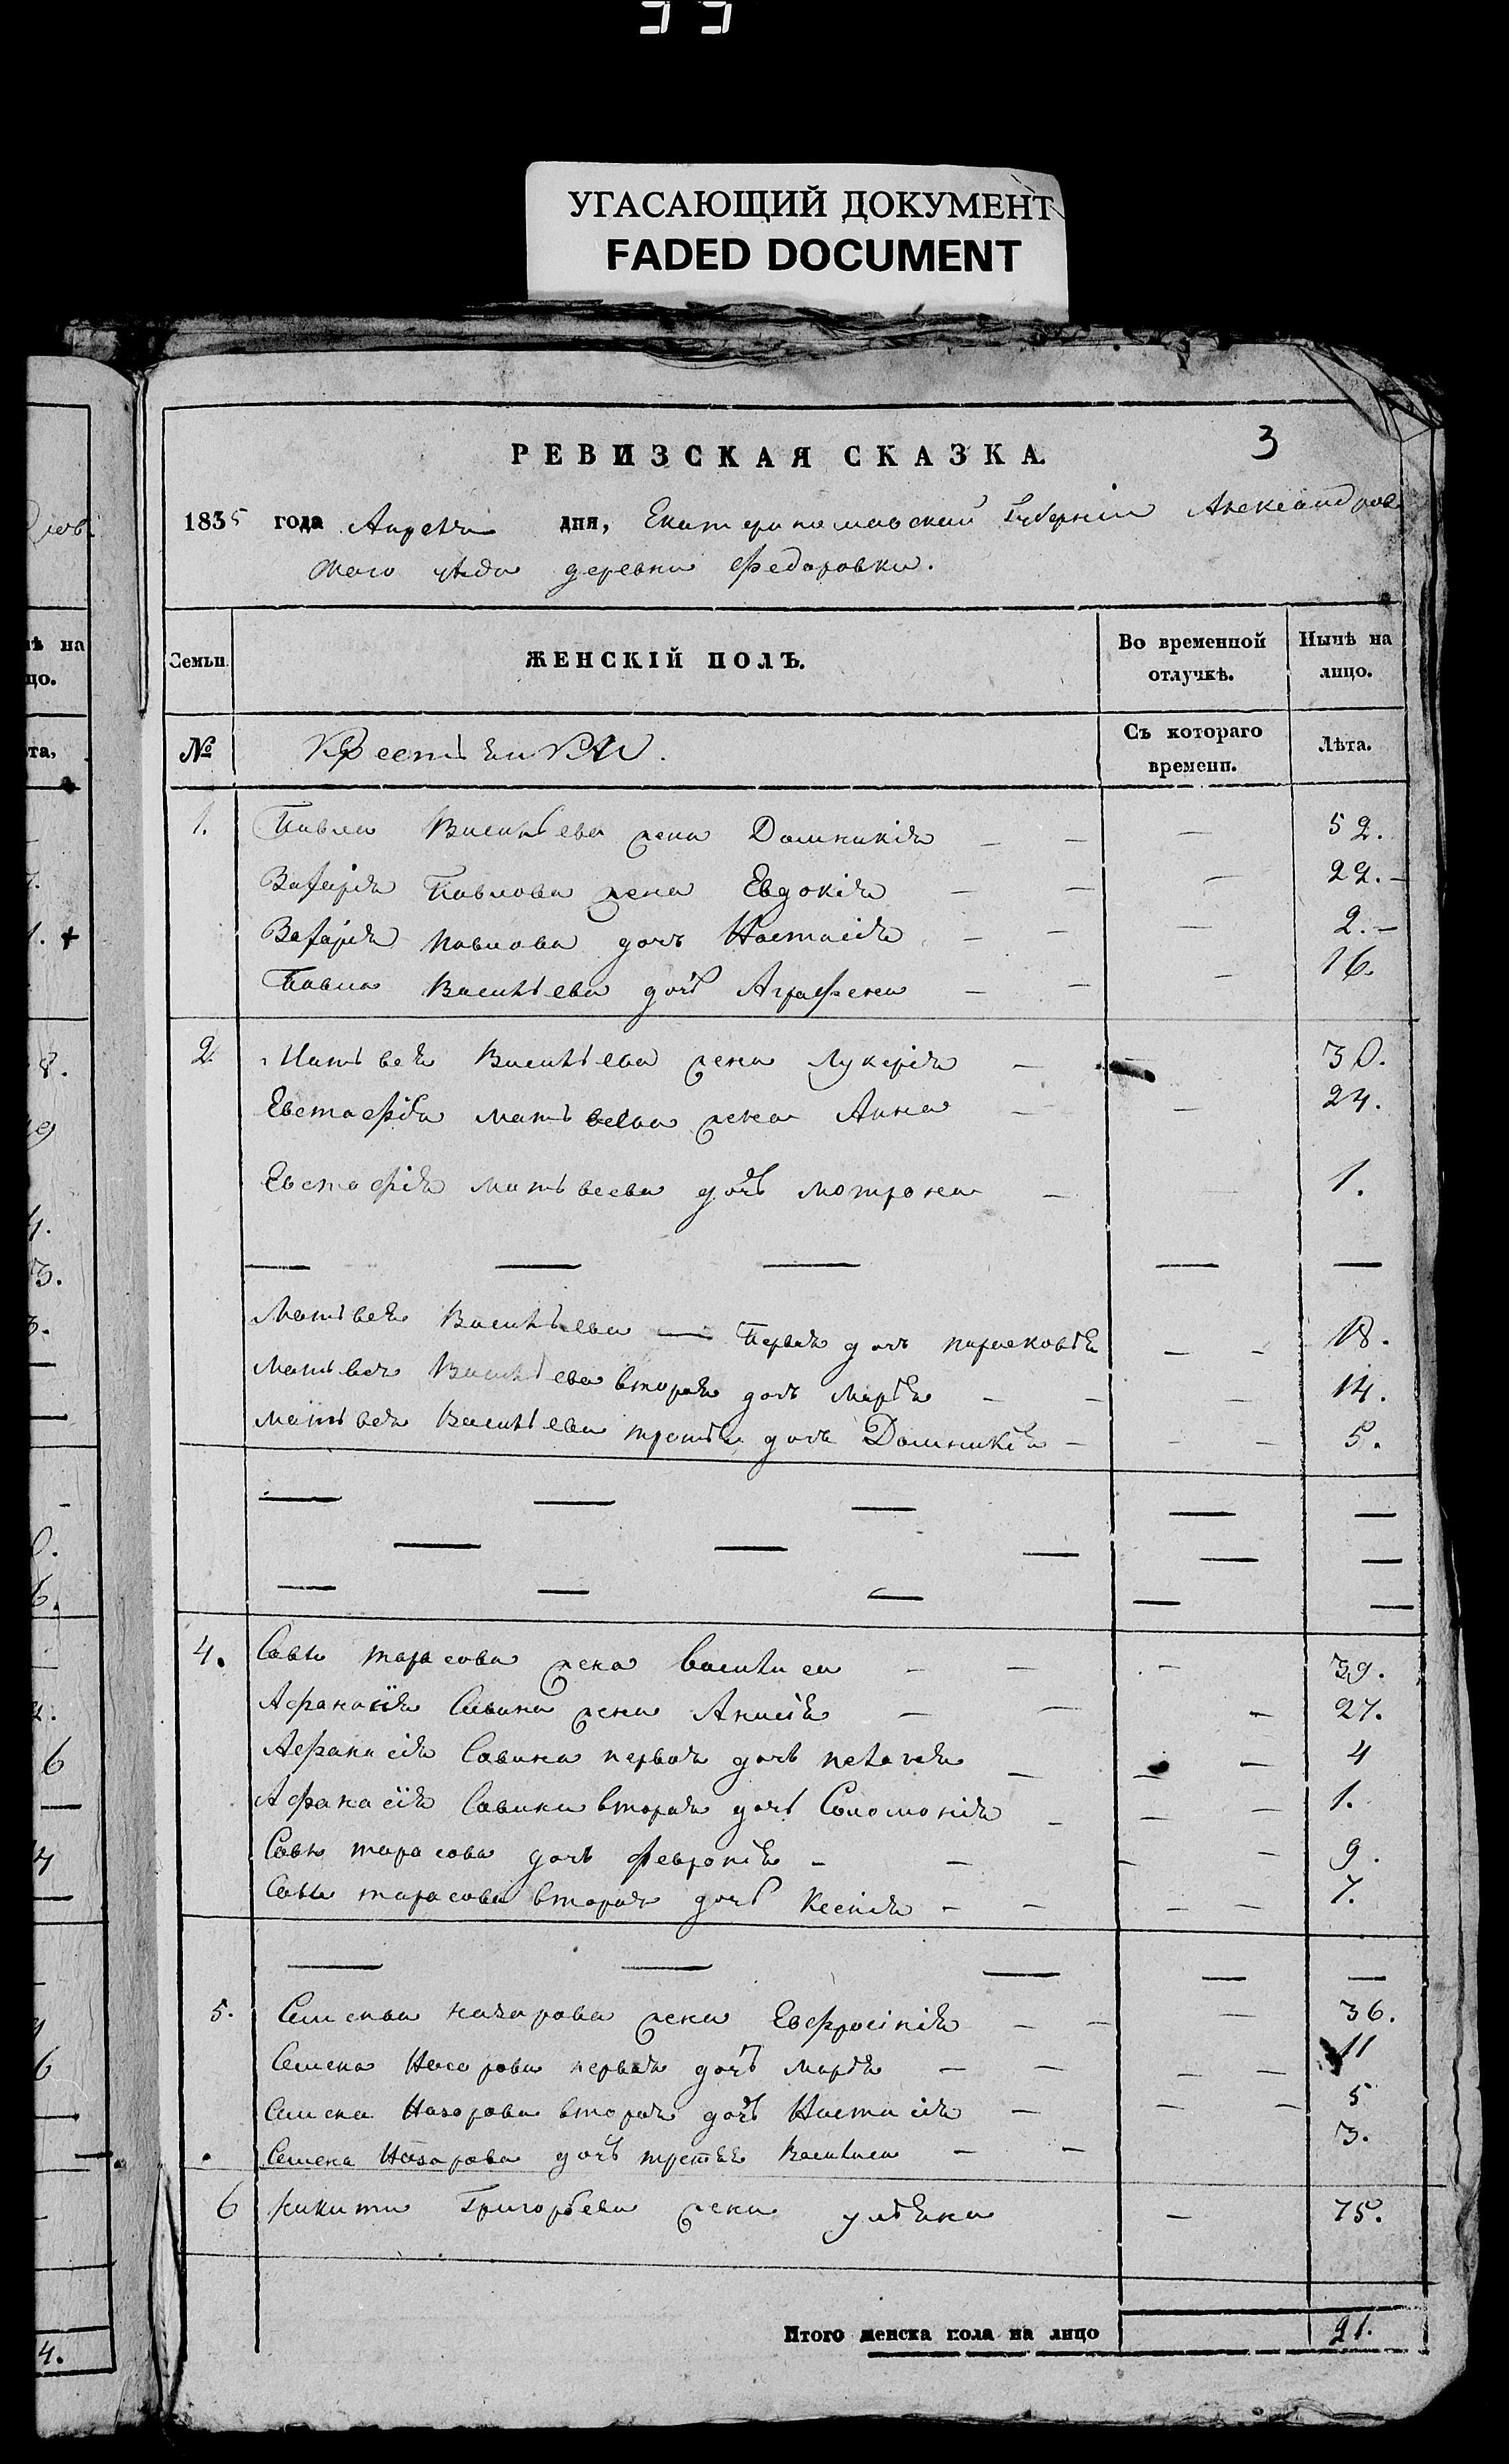 УГАСАЮЩИЙ ДОКУМЕНТ
FADED DOCUMENT
3
РЕВИЗСКАЯ СКАЗКА.
1835 года Апреля дня, Екатеринославской Губернии Александров
скаго уѣзда деревни Федоровки.
Семьи. ЖЕНСКІЙ ПОЛЪ. Во временной отлучкѣ. Нынѣ на лицо.
№ Крестьянки. Съ котораго времени. Лѣта.
1. Павла Васильева жена Домникія — — — 52.
Захарія Павлова жена Евдокія — — — 22. —
Захарія Павлова дочь Настасія — — — 2. —
Павла Васильева дочь Аграфена — — — 16.
2. Матвея Васильева жена Лукерія — 30.
Евстафія Матвеева жена Анна — — 24.
Евстафія Матвеева дочь Мотрона — 1.
— — — — —
Матвея Васильева — Первая дочь Парасковья — — 18.
Матвея Васильева вторая дочь Марья — — — 14.
Матвея Васильева третья дочь Домникія — — — 5.
— — — — —
— — — — —
— — — — —
4. Савы Тарасова жена Василиса — — — 39.
Афанасія Савина жена Анисія — — — 27.
Афанасія Савина первая дочь Пелагея — — — 4
Афанасія Савина вторая дочь Соломонія — — — 1.
Савы Тарасова дочь Февронія — — — — 9.
Савы Тарасова вторая дочь Ксенія — — — — 7.
— — — — —
5. Семена Назарова жена Евфросинія — — — 36.
Семена Назарова первая дочь Марья — — — — 11
Семена Назарова вторая дочь Настасія — — — 5
Семена Назарова дочь третья Василиса — — 3.
6 Никиты Григорьева жена Ульяна — 75.
Итого женска пола на лицо 21.